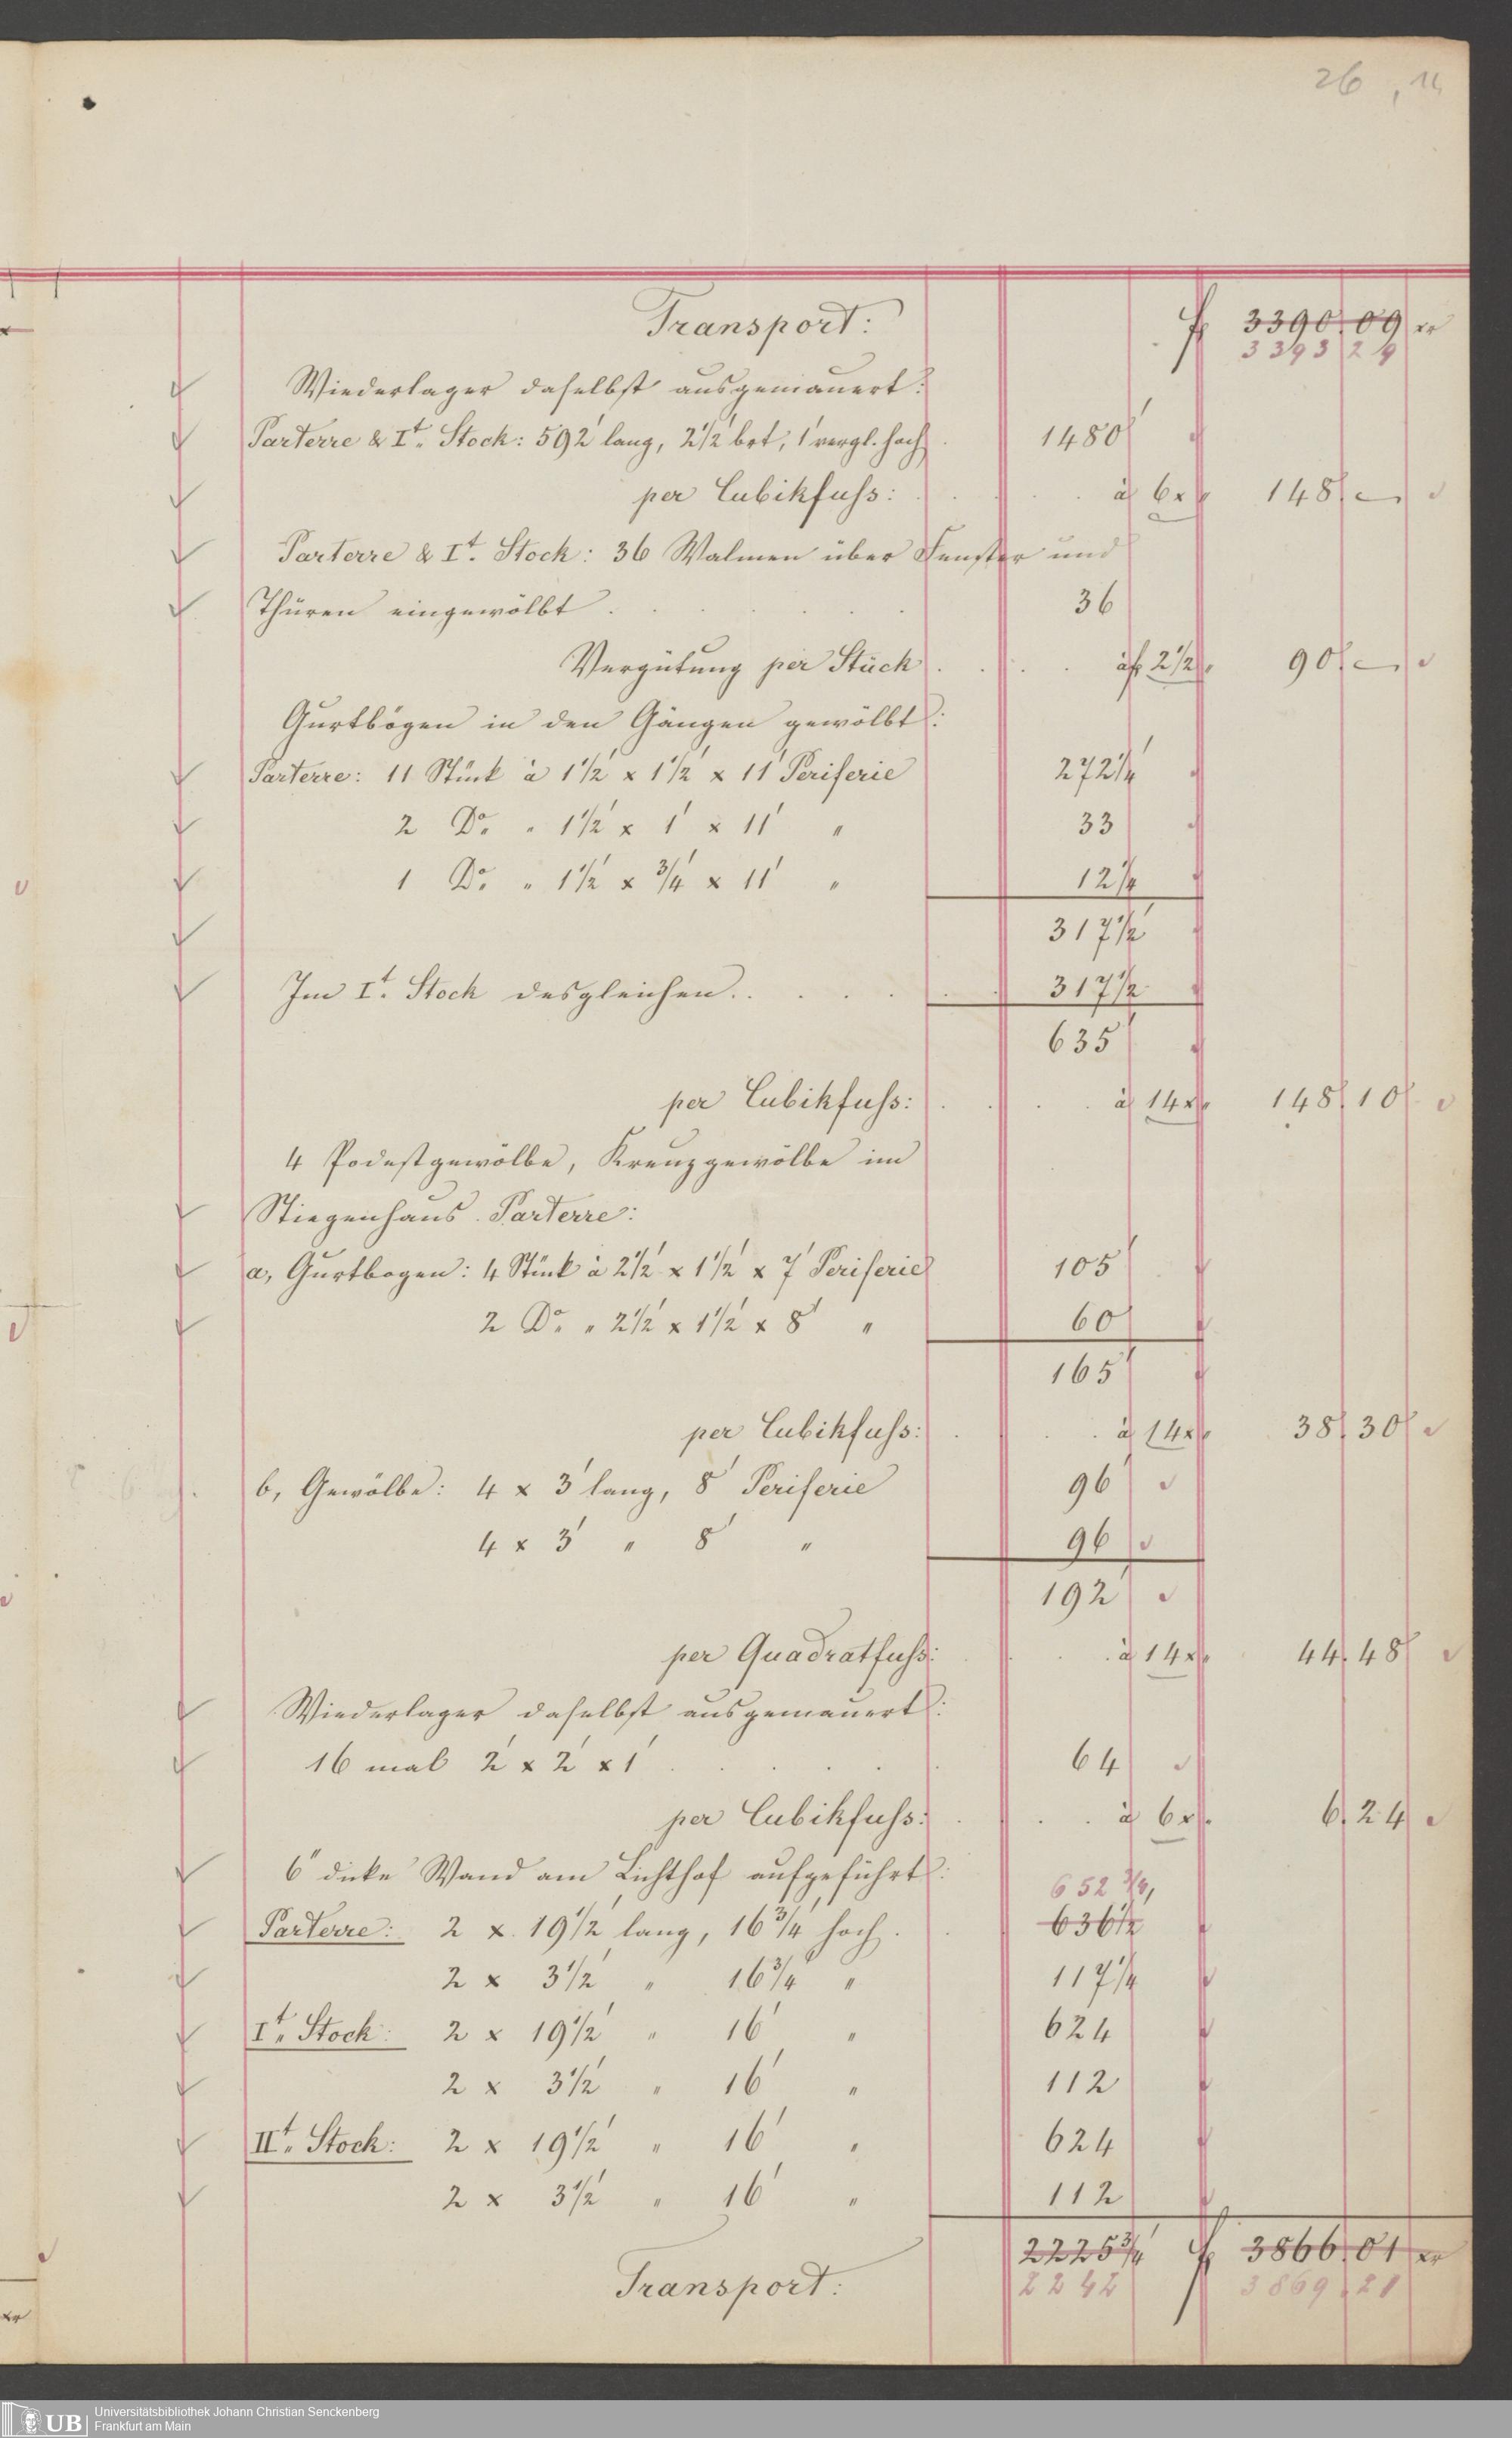 26, 11
Transport: f 3390.09 xr
3393 29
Wiederlager daselbst ausgemauert:
Parterre & It. Stock: 592' lang, 2½' brt, 1' vergl. hoch . 1480'
per Cubikfuss: . . . à 6x 148 —
Parterre & It. Stock: 36 Walmen über Fenster und
Thüren eingewölbt . . . . . . 36
Vergütung per Stück . . . . à f 2½ 90 —
Gurtbögen in den Gängen gewölbt:
Parterre: 11 Stück à 1½' x 1½' x 11' Periferie 272¼'
2 Do. " 1½' x 1' x 11' " 33
1 Do. " 1½' x ¾' x 11' " 12¼
317½'
Im It. Stock desgleichen . . . . . . 317½
635'
per Cubikfuss: . . . . à 14x 148. 10
4 Podestgewölbe, Kreuzgewölbe im
Stiegenhaus Parterre:
a, Gurtbogen: 4 Stück à 2½' x 1½' x 7' Periferie 105'
2 Do. " 2½' x 1½' x 8' " 60
165'
per Cubikfuss: . . . à 14x 38. 30
b, Gewölbe: 4 x 3' lang, 8' Periferie 96'
4 x 3' " 8' " 96
192'
per Quadratfuss: . . . à 14x 44. 48
Wiederlager daselbst ausgemauert:
16 mal 2' x 2' x 1' . . . . . 64
per Cubikfuss: . . . à 6x 6. 24
6" dicke Wand am Lichthof aufgeführt:
652¾,
Parterre: 2 x 19½' lang, 16¾' hoch . . 636½
2 x 3½' " 16¾' " 117¼
It. Stock: 2 x 19½' " 16' " 624
2 x 3½' " 16' " 112
IIt. Stock: 2 x 19½' " 16' " 624
2 x 3½' " 16' " 112
2225¾' f 3866.01 xr
Transport: 2242 3869.21
xr
UB Universitätsbibliothek Johann Christian Senckenberg
Frankfurt am Main